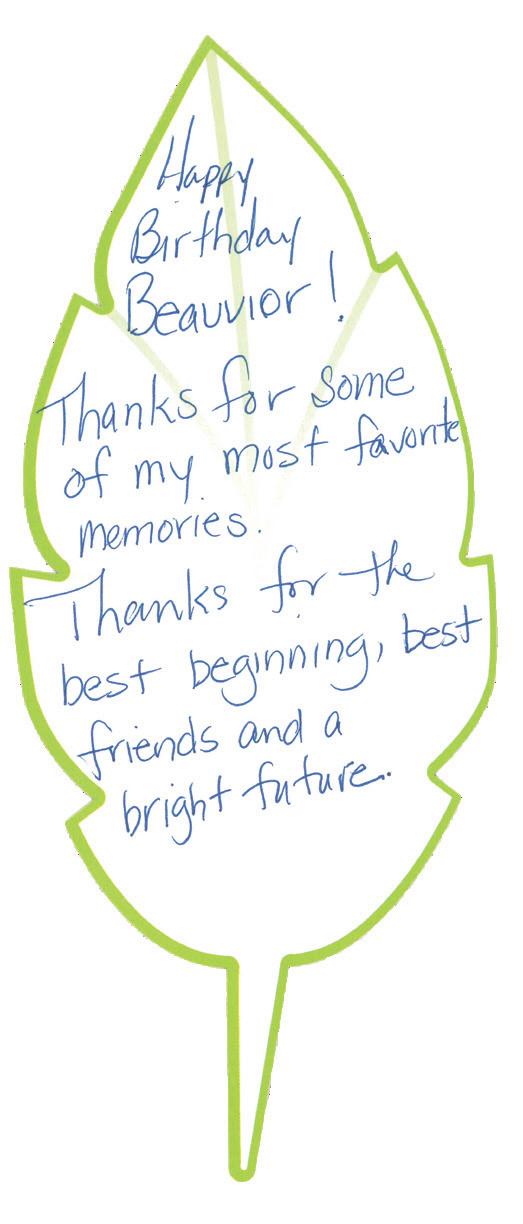 Happy
Birthday
Beauvior!
Thanks for some
of my most favorite
memories.
Thanks for the
best beginning, best
friends and a
bright future.